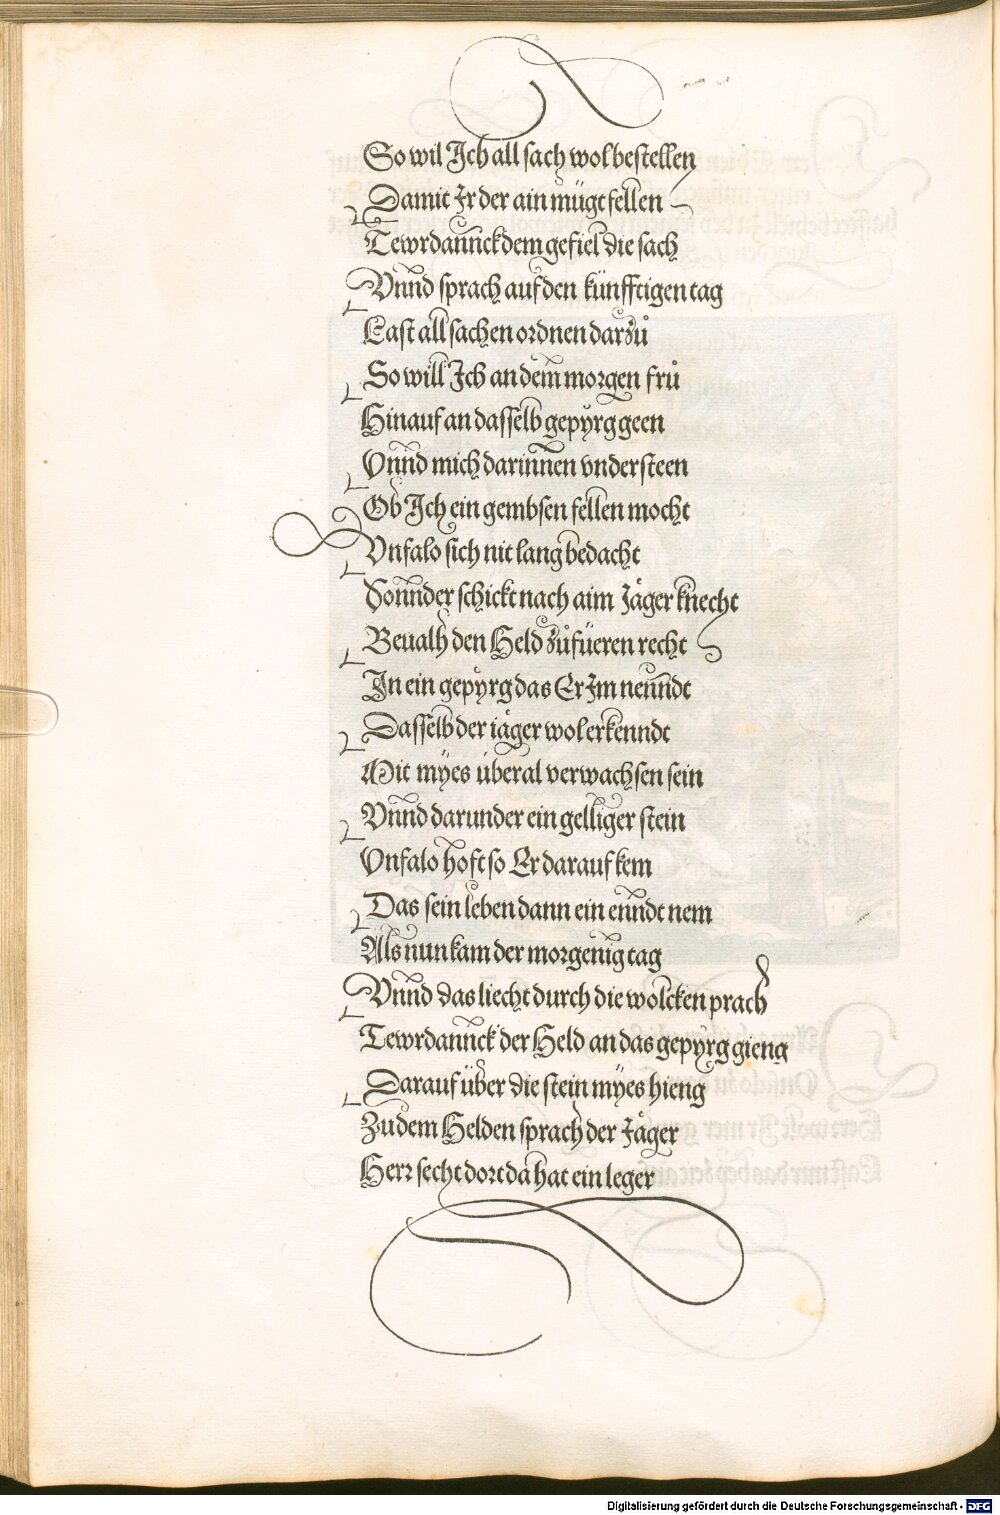 So wil Jch all sach wol bestellen
Damit Jr der ain mügt fellen
Tewrdannck dem gefiel die sach
Vnnd sprach auf den künfftigen tag
Last all sachen ordnen darzů
So will Jch an dem morgen frů
Hinauf an dasselb gepyrg geen
Vnnd mich darinnen vndersteen
Ob Jch ein gembsen fellen mocht
Vnfalo sich nit lang bedacht
Sonnder schickt nach aim Jäger knecht
Beualh den Held zůfüeren recht
Jn ein gepyrg das Er Jm nenndt
Dasselb der iäger wol erkenndt
Mit myes überal verwachsen sein
Vnnd darunder ein gelliger stein
Vnfalo hoft so Er darauf kem
Das sein leben dann ein enndt nem
Als nun kam der morgenig tag
Vnnd das liecht durch die wolcken prach
Tewrdannck der Held an das gepyrg gieng
Darauf über die stein myes hieng
Zu dem Helden sprach der Jäger
Herr secht dort da hat ein leger
Digitalisierung gefördert durch die Deutsche Forschungsgemeinschaft - DFG